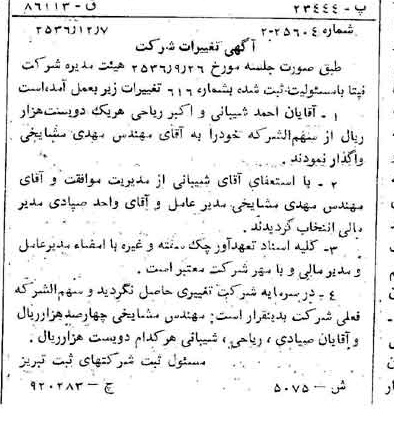 پ – ۲۳۴۴۴ ق – ۸۶۱۱۳
شماره ۲۵۶۰۴-۲ ۲۵۳۶/۱۲/۷
آگهی تغییرات شرکت
طبق صورت جلسه مورخ ۲۵۳۶/۹/۲۶ هیئت مدیره شرکت
نیتا بامسئولیت ثبت شده بشماره ۶۱۶ تغییرات زیر بعمل آمده‌است
۱ – آقایان احمد شیبانی و اکبر ریاحی هریک دویست‌هزار
ریال از سهم‌الشرکه خودرا به آقای مهندس مهدی مشایخی
واگذار نمودند .
۲ – با استعفای آقای شیبانی از مدیریت موافقت و آقای
مهندس مهدی مشایخی مدیر عامل و آقای واحد صیادی مدیر
مالی انتخاب گردیدند .
۳- کلیه اسناد تعهدآور چک سفته و غیره با امضاء مدیرعامل
و مدیر مالی و با مهر شرکت معتبر است .
۴ – در سرمایه شرکت تغییری حاصل نگردید و سهم‌الشرکه
فعلی شرکت بدینقرار است: مهندس مشایخی چهارصدهزارریال
و آقایان صیادی ، ریاحی ، شیبانی هرکدام دویست هزارریال .
مسئول ثبت شرکتهای ثبت تبریز
ش – ۵۰۷۵ ج – ۹۲۰۲۸۳